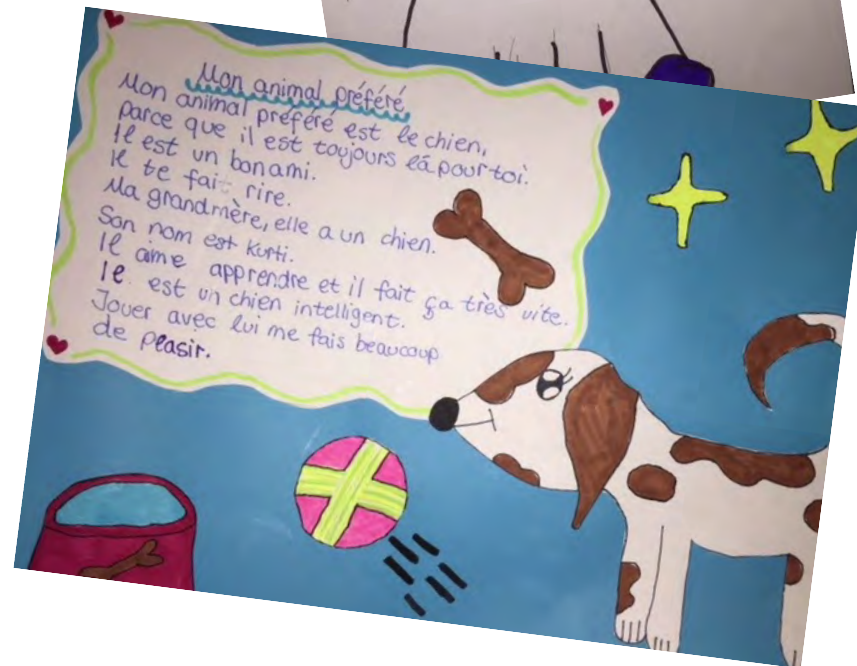 Mon animal préféré
Mon animal préféré est le chien,
parce que il est toujours lá pour toi.
Il est un bon ami.
Il te fait rire.
Ma grandmère, elle a un chien.
Son nom est Kurti.
Il aime apprendre et il fait ça très vite.
Il est un chien intelligent.
Jouer avec lui me fais beaucoup
de plasir.